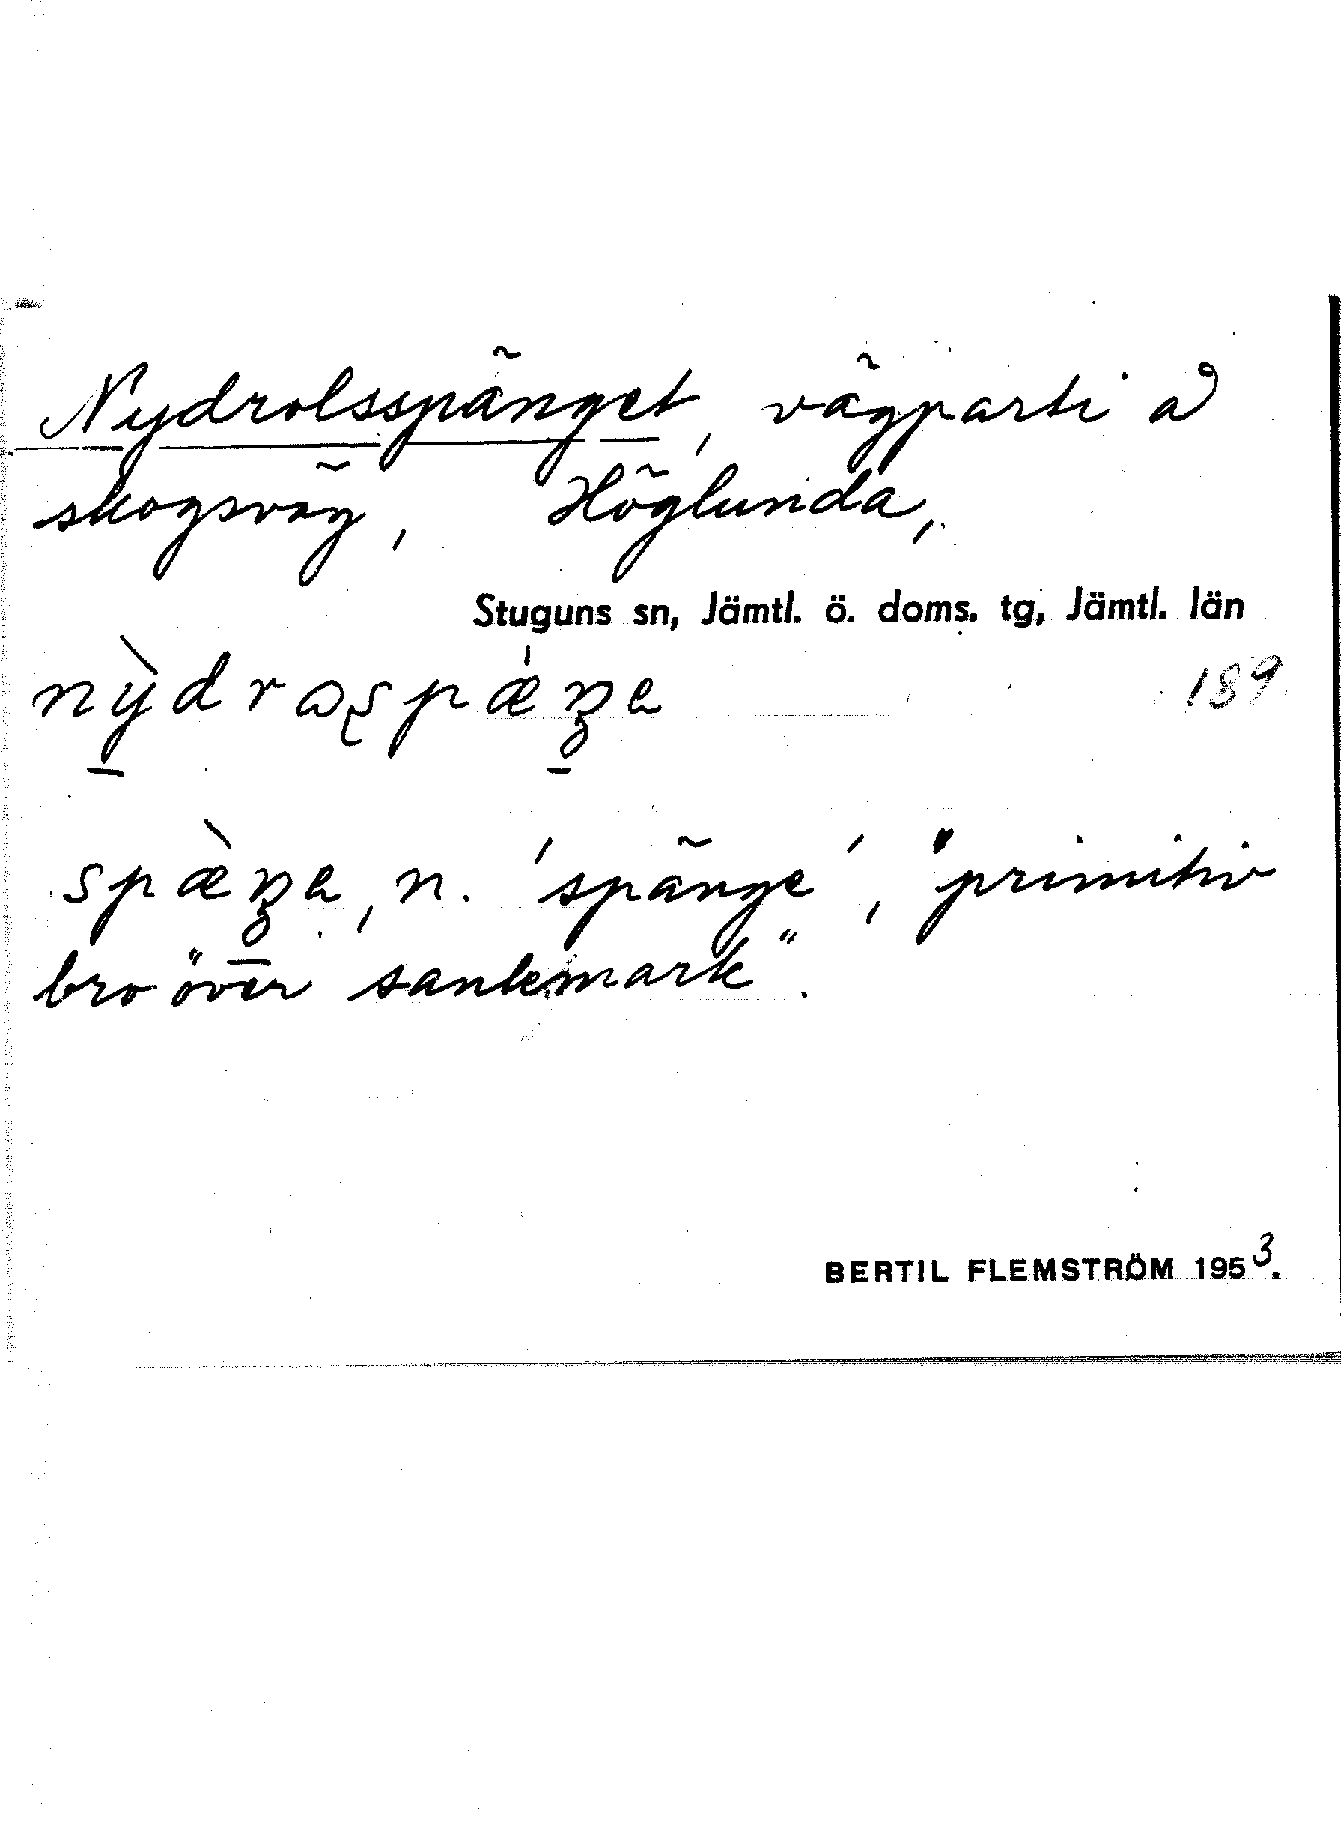 Nydrolsspänget, vägparti å
skogsväg, Höglunda,
Stuguns sn, Jämtl. ö. doms. tg, Jämtl. län
189
spæ̀ŋe, n. 'spänge', "primitiv
bro över sankmark".
BERTIL FLEMSTRÖM 1953.